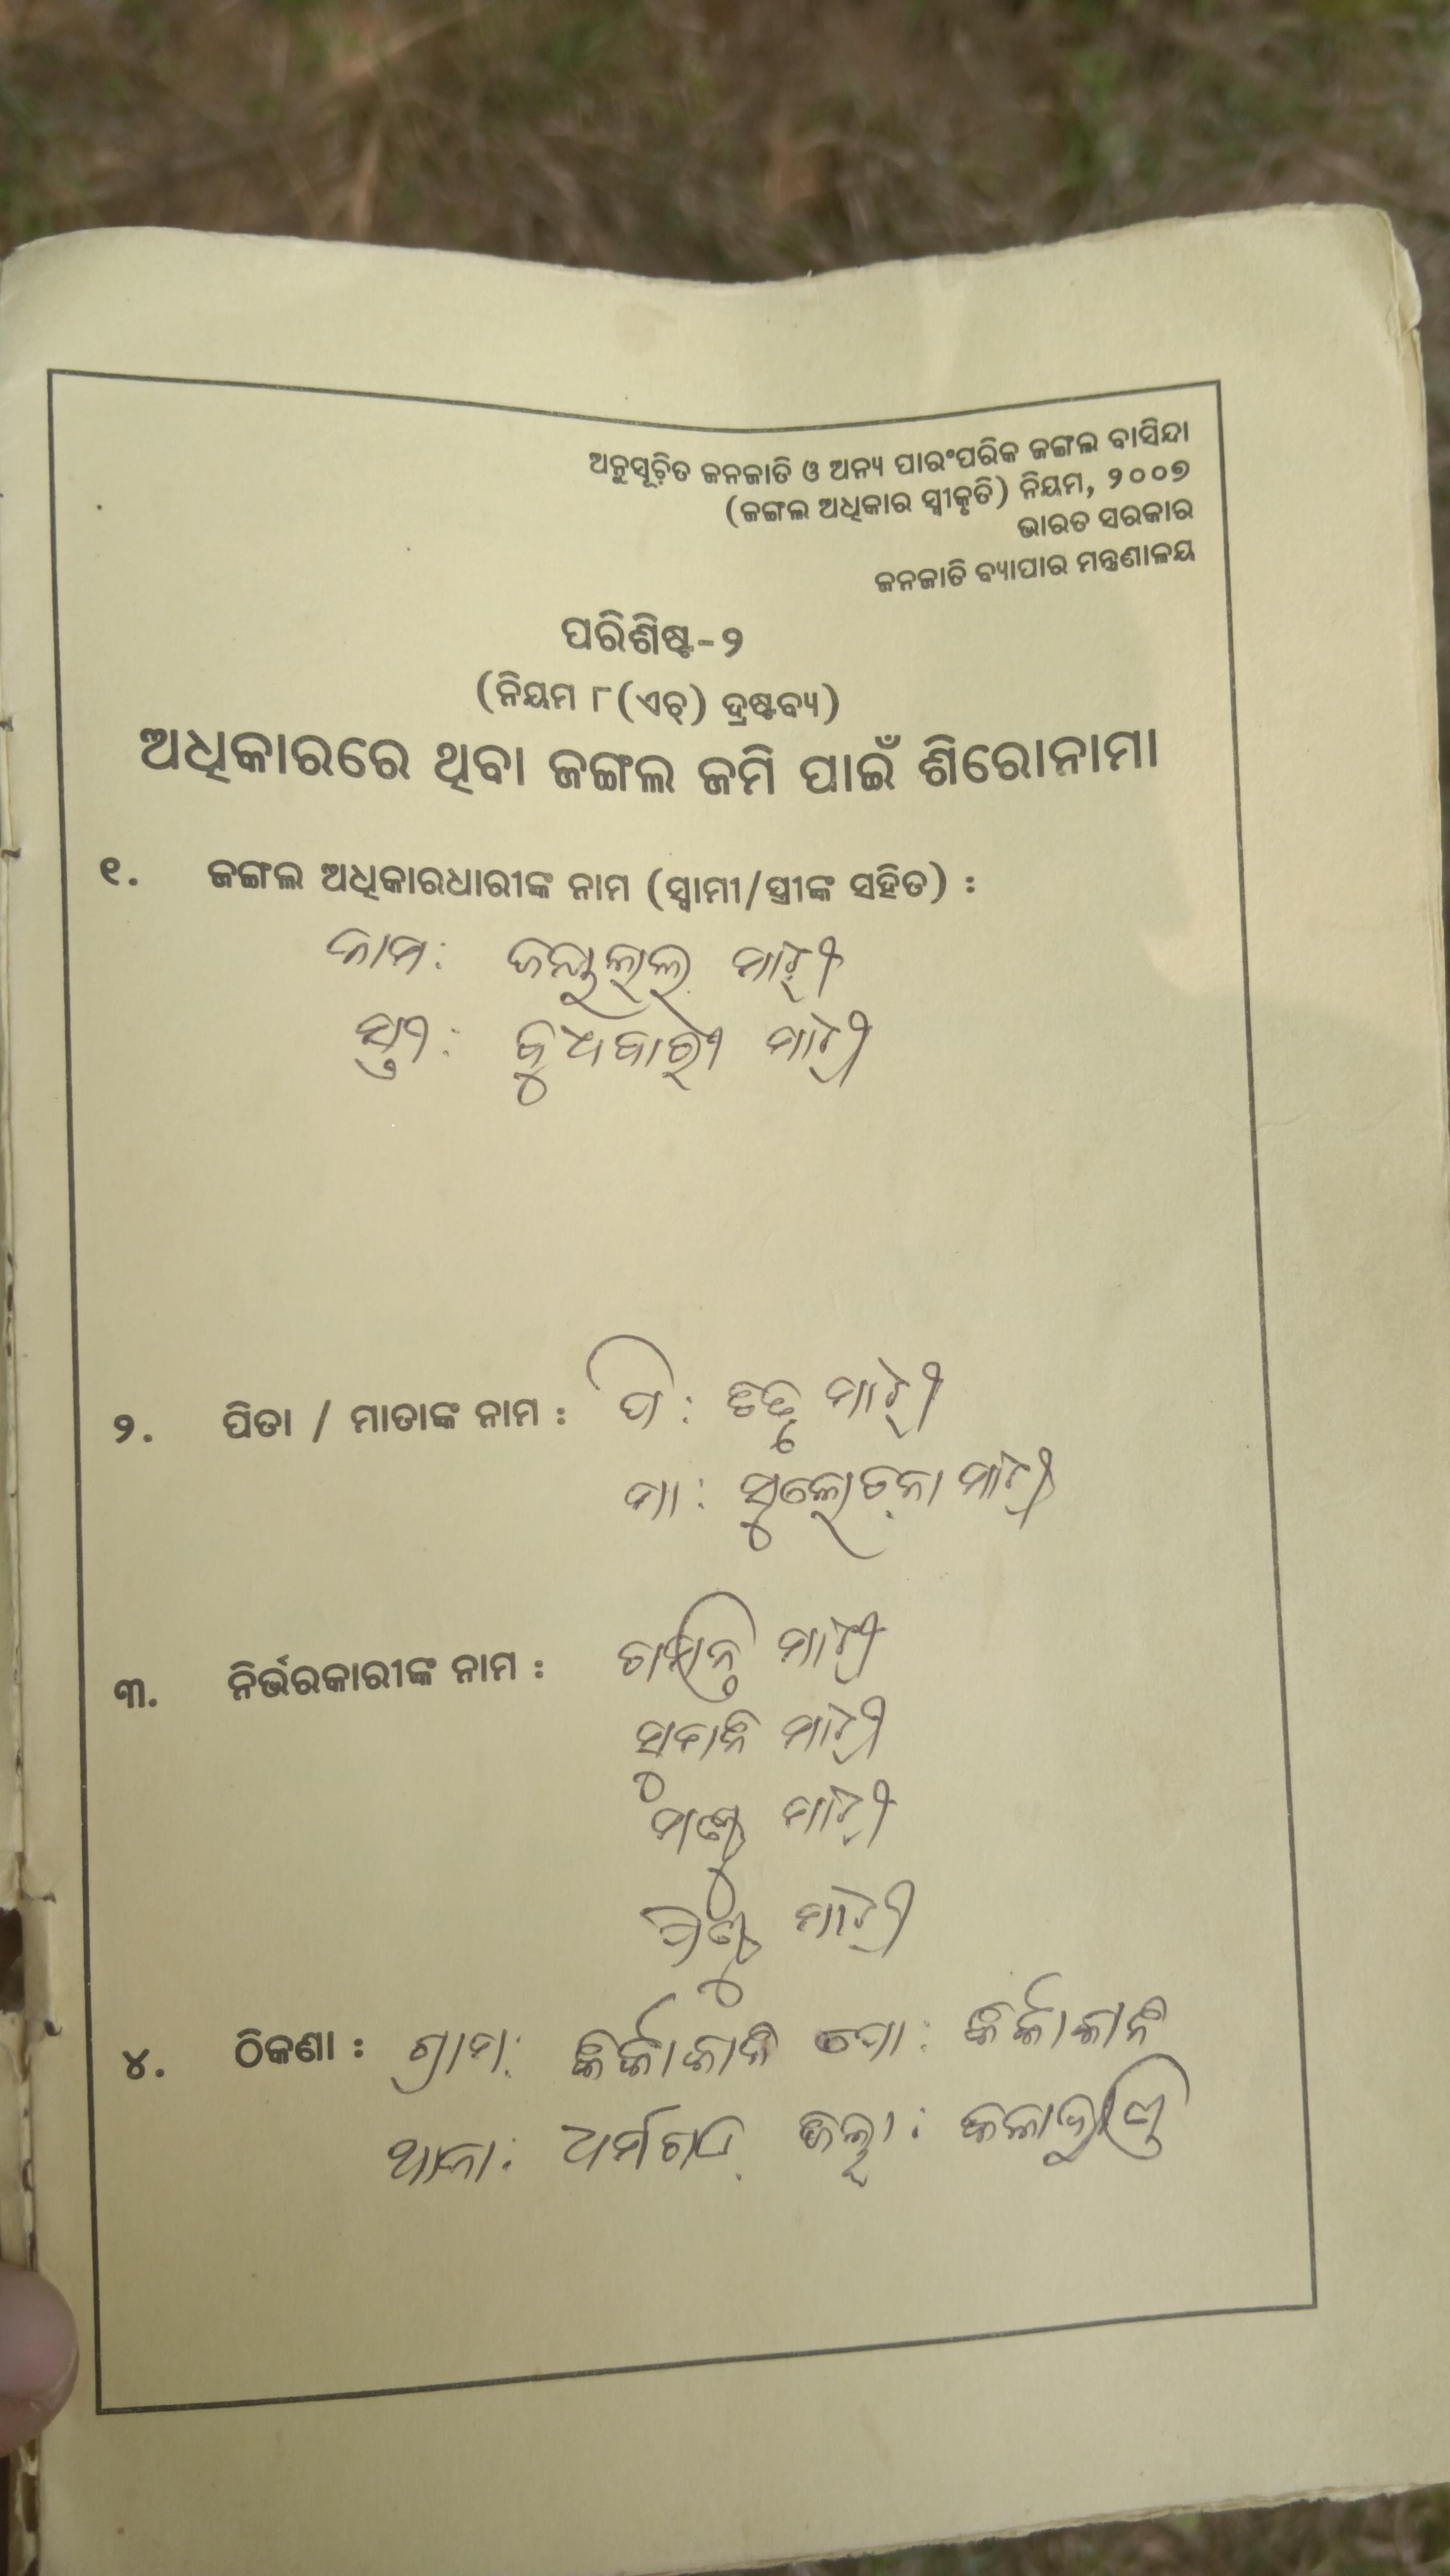 ଅନୁସୂଚିତ ଜନଜାତି ଓ ଅନ୍ୟ ପାରଂପରିକ ଜଙ୍ଗଲ ବାସିନ୍ଦା
(ଜଙ୍ଗଲ ଅଧିକାର ସ୍ୱୀକୃତି) ନିୟମ, ୨୦୦୭
ଭାରତ ସରକାର
ଜନଜାତି ବ୍ୟାପାର ମନ୍ତ୍ରଣାଳୟ
ପରିଶିଷ୍ଟ-୨
(ନିୟମ ୮(ଏଚ୍) ଦ୍ରଷ୍ଟବ୍ୟ)
ଅଧିକାରରେ ଥିବା ଜଙ୍ଗଲ ଜମି ପାଇଁ ଶିରୋନାମା
୧. ଜଙ୍ଗଲ ଅଧିକାରଧାରୀଙ୍କ ନାମ (ସ୍ୱାମୀ/ସ୍ତ୍ରୀଙ୍କ ସହିତ) :
ନାମ: ମାଝୀ
ସ୍ତ୍ରୀ: ବୁଧବାରୀ ମାଝୀ
୨. ପିତା / ମାତାଙ୍କ ନାମ : ପି: ମାଝୀ
ମା: ସୁଲୋଚନା ମାଝୀ
୩. ନିର୍ଭରକାରୀଙ୍କ ନାମ : ମାଝୀ
ମାଝୀ
ମାଝୀ
ମାଝୀ
୪. ଠିକଣା : ଗ୍ରାମ: ପୋ:
ଥାନା: ଧର୍ମଗଡ଼ ଜିଲ୍ଲା: କଳାହାଣ୍ଡି